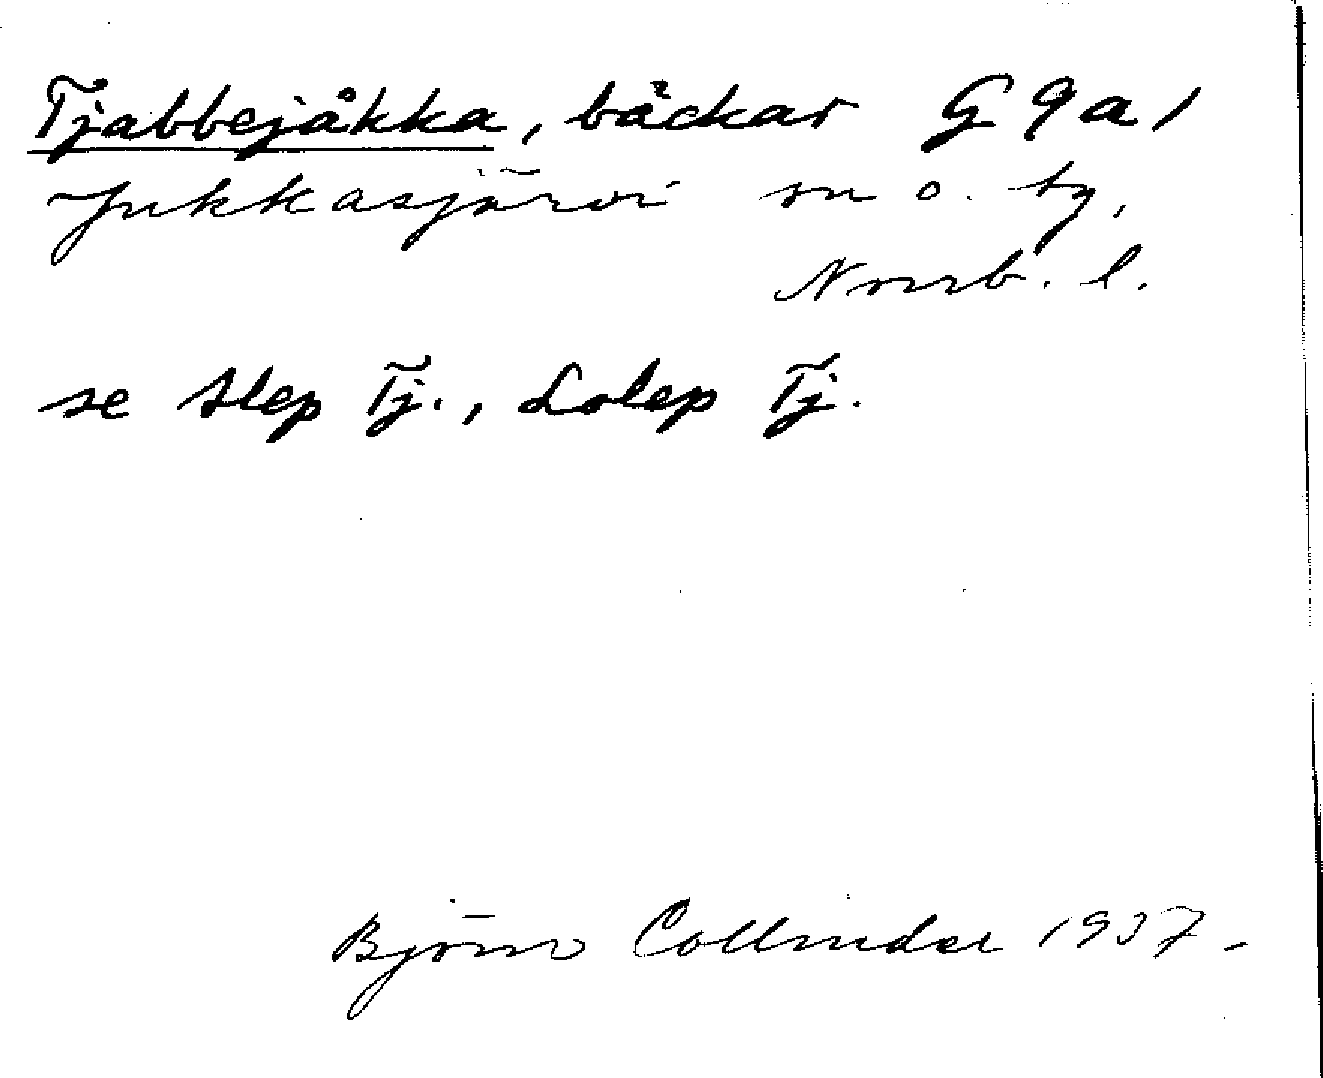 Tjabbejåkka, bäckar G 9 a 1
Jukkasjärvi sn o. tg,
Norrb. l.
se Alep Tj., Lolep Tj.
Björn Collinder 1937 -